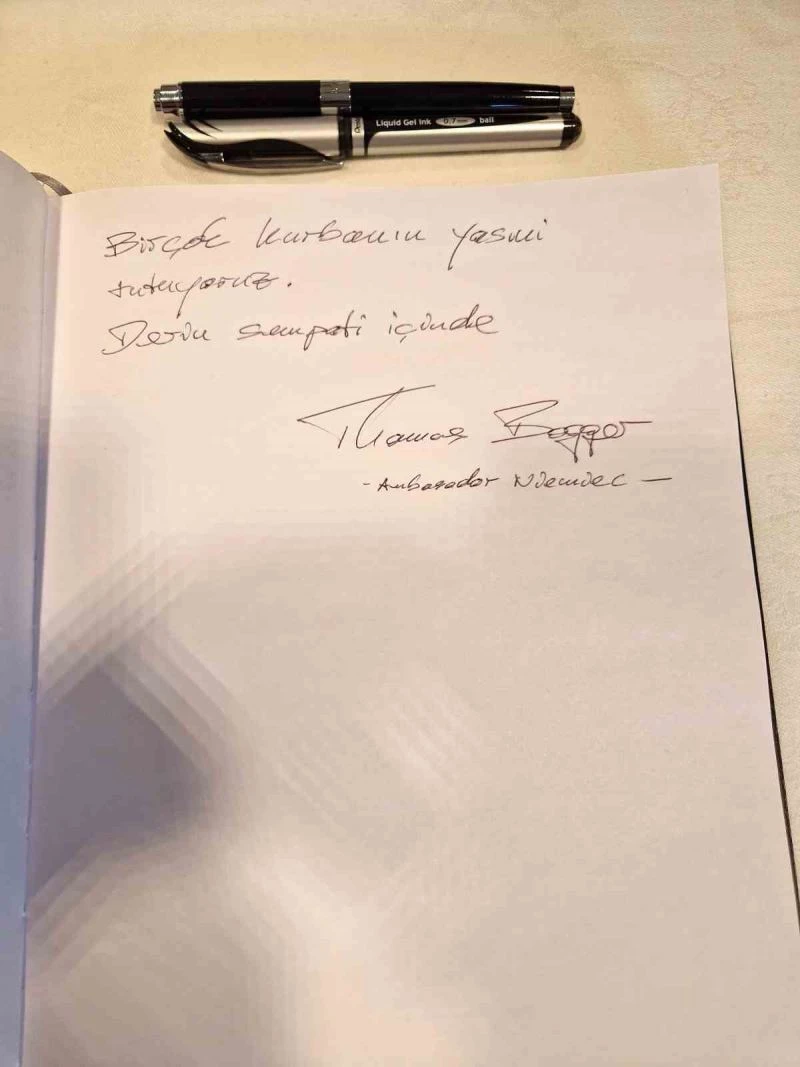 Liquid Gel Ink 0.7mm ball
Birçok kurbanın yasini
tutuyoruz.
Derin sempati içinde
Thomas Bagger
- Ambasador Niemiec -